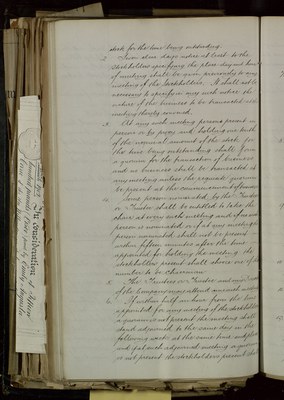 stock for the time being outstanding.
2. Seven clear days notice at least to the
stockholders specifying the place day and hour
of meeting shall be given previously to any
meeting of the Stockholders. It shall not be
necessary to specify in any such notice the
nature of the business to be transacted at
meeting thereby convened.
3. At any such meeting persons present in
person or by proxy and holding one tenth
of the nominal amount of the stock for
the time being outstanding shall form
a quorum for the transaction of business
and no business shall be transacted at
any meeting unless the requisite quorum
be present at the commencement of business
4. Some person nominated by the Trustee
or Trustees shall be entitled to take the
chair at every such meeting and if no such
person is nominated or if at any meeting the
person nominated shall not be present
within fifteen minutes after the time
appointed for holding the meeting the
stockholders present shall choose one of their
number to be Chairman
5. The Trustees or Trustee and any
of the Company may attend any such meeting
6. If within half an hour from the time
appointed for any meeting of the stockholders
a quorum is not present the meeting shall
stand adjourned to the same day in the
following week at the same time and place
and if at such adjourned meeting a quorum
is not present the stockholders present shall
In consideration